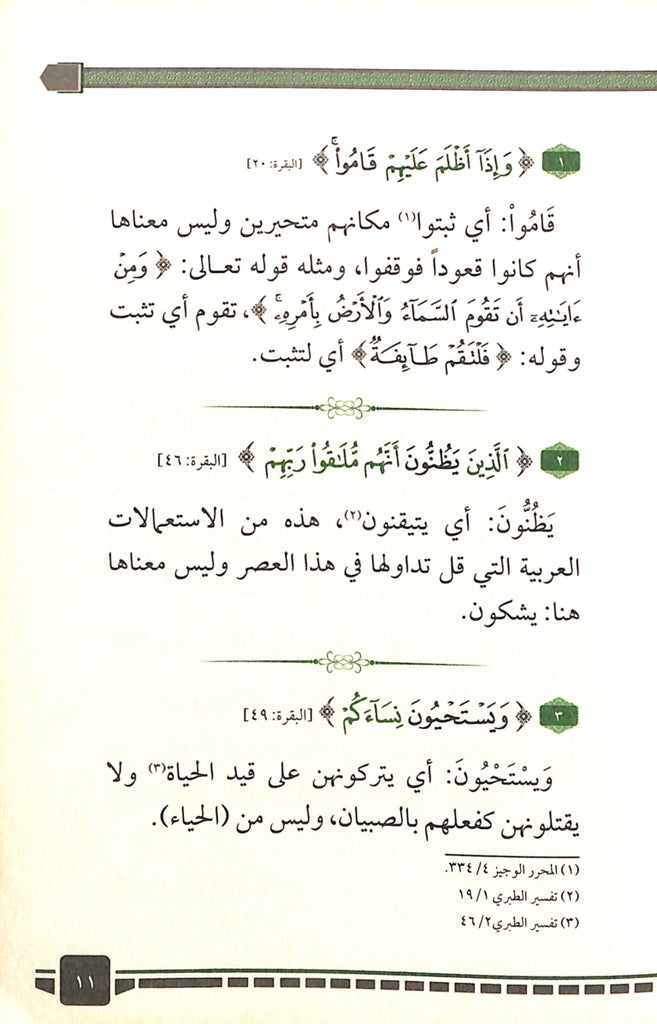 ١ ﴿ وَإِذَآ أَظۡلَمَ عَلَيۡهِمۡ قَامُواْۚ ﴾ [البقرة: ٢٠]
قَامُواْ: أي ثبتوا(١) مكانهم متحيرين وليس معناها
أنهم كانوا قعوداً فوقفوا، ومثله قوله تعـالى: ﴿ وَمِنۡ
ءَايَٰتِهِۦٓ أَن تَقُومَ ٱلسَّمَآءُ وَٱلۡأَرۡضُ بِأَمۡرِهِۦۚ ﴾، تقوم أي تثبت
وقوله: ﴿ فَلۡتَقُمۡ طَآئِفَةٞ ﴾ أي لتثبت.
٢ ﴿ ٱلَّذِينَ يَظُنُّونَ أَنَّهُم مُّلَٰقُواْ رَبِّهِمۡ ﴾ [البقرة: ٤٦]
يَظُنُّونَ: أي يتيقنون(٢)، هذه من الاستعمالات
العربية التي قل تداولها في هذا العصر وليس معناها
هنا: يشكون.
٣ ﴿ وَيَسۡتَحۡيُونَ نِسَآءَكُمۡ ﴾ [البقرة: ٤٩]
وَيسْتَحْيُونَ: أي يتركونهن على قيد الحياة(٣) ولا
يقتلونهن كفعلهم بالصبيان، وليس من (الحياء).
(١) المحرر الوجيز ٤/ ٣٣٤.
(٢) تفسير الطبري ١/ ١٩
(٣) تفسير الطبري ٢/ ٤٦
١١